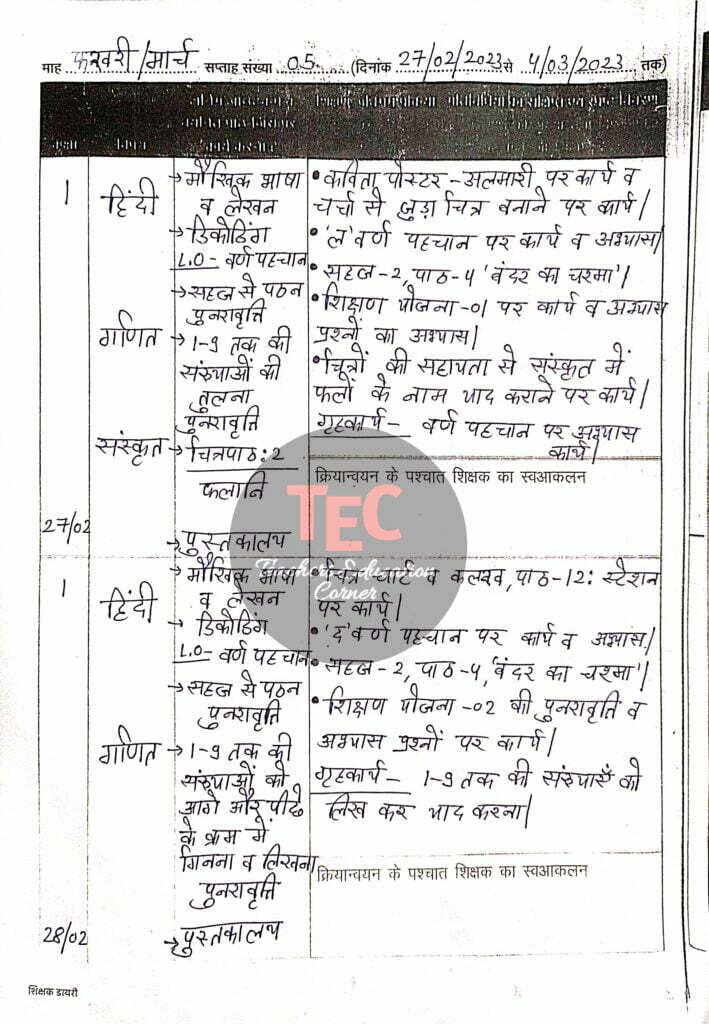 माह फरवरी/मार्च सप्ताह संख्या 05 (दिनांक 27/02/2023 से 4/03/2023 तक)
1
हिंदी
→ मौखिक भाषा
व लेखन
→ डिकोडिंग
L.O - वर्ण पहचान
→ सहज से पठन
पुनरावृति
गणित
→ 1-9 तक की
संख्याओं की
तुलना
पुनरावृति
संस्कृत
→ चित्रपाठ : 2
फलानि
27/02
→ पुस्तकालय
• कविता पोस्टर - अलमारी पर कार्य व
चर्चा से जुड़ा चित्र बनाने पर कार्य|
• 'ल' वर्ण पहचान पर कार्य व अभ्यास|
• सहज-2, पाठ-4 'बंदर का चश्मा'|
• शिक्षण योजना-01 पर कार्य व अभ्यास
प्रश्नों का अभ्यास|
• चित्रों की सहायता से संस्कृत में
फलों के नाम याद कराने पर कार्य|
गृहकार्य - वर्ण पहचान पर अभ्यास
कार्य|
क्रियान्वयन के पश्चात शिक्षक का स्वआकलन
TEC
Teachers Education
Corner
1
हिंदी
→ मौखिक भाषा
व लेखन
→ डिकोडिंग
L.O - वर्ण पहचान
→ सहज से पठन
पुनरावृति
गणित
→ 1-9 तक की
संख्याओं को
आगे और पीछे
के क्रम में
गिनना व लिखना
पुनरावृति
28/02
→ पुस्तकालय
• चित्र चार्ट व कलरव, पाठ-12: स्टेशन
पर कार्य|
• 'द' वर्ण पहचान पर कार्य व अभ्यास|
• सहज-2, पाठ-4, 'बंदर का चश्मा'|
• शिक्षण योजना-02 की पुनरावृति व
अभ्यास प्रश्नों पर कार्य|
गृहकार्य - 1-9 तक की संख्याएँ को
लिख कर याद करना|
क्रियान्वयन के पश्चात शिक्षक का स्वआकलन
शिक्षक डायरी